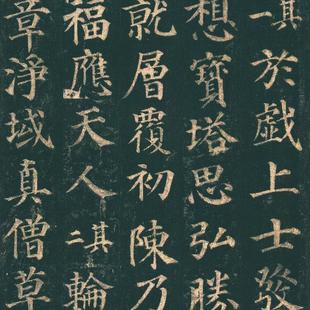 其一於戲上士發
想寶塔思弘勝
就層覆初陳乃
福應天人其二輪
章淨域真僧草